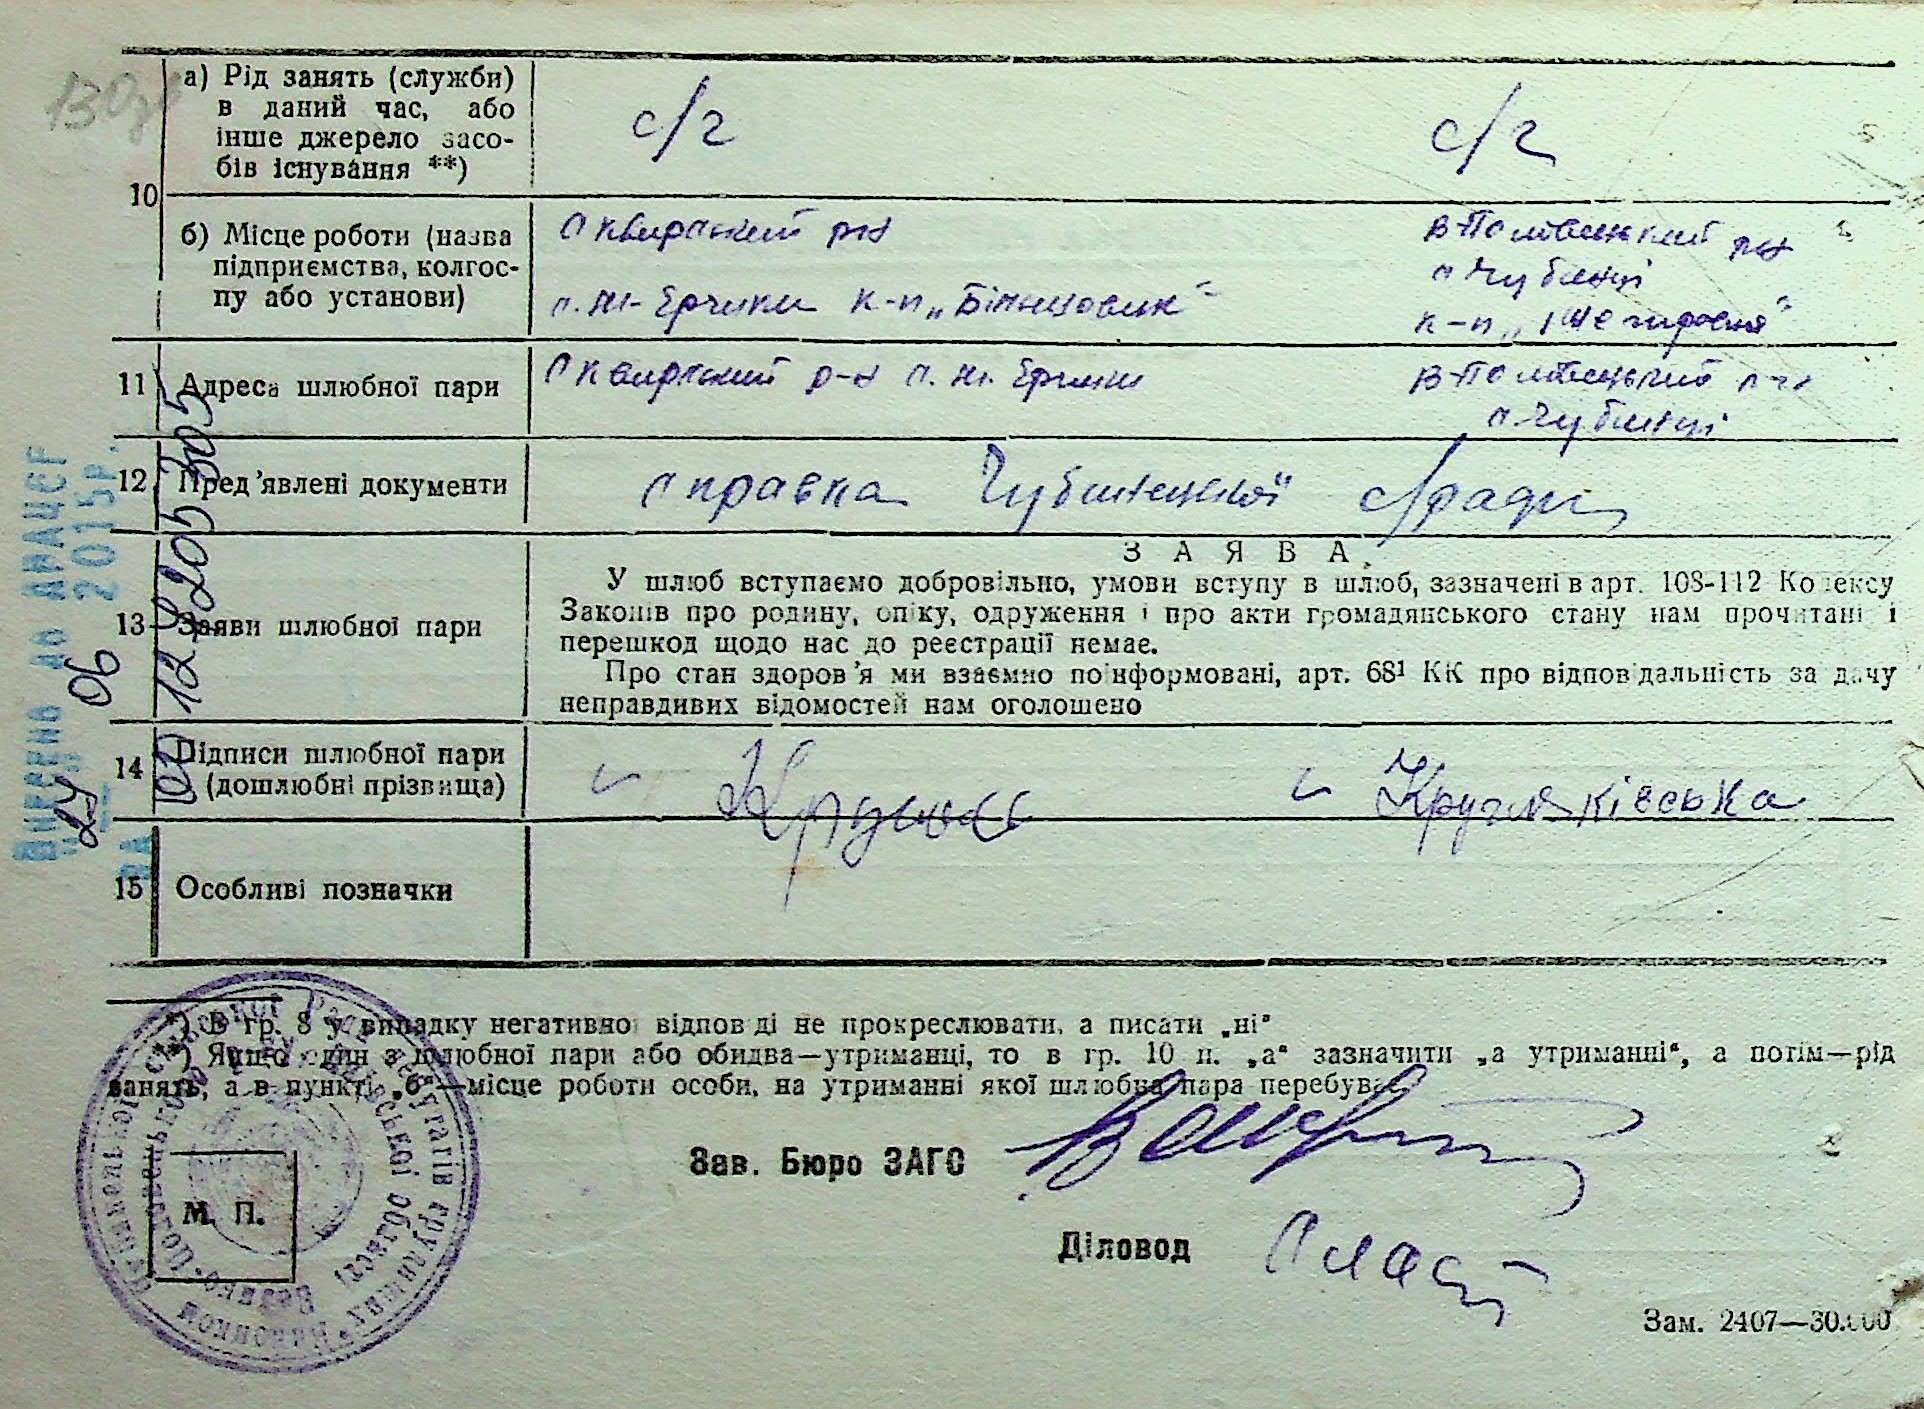 а) Рід занять (служби)
в даний час, або
інше джерело засо-
бів існування **)
с/г с/г
10
б) Місце роботи (назва
підприємства, колгос-
пу або установи)
Сквирський р-н
с. М-Єрчики к-п „Більшовик"
В-Половецький р-н
с. Чубинці
к-п
11 Адреса шлюбної пари
Сквирський р-н с. М. Єрчики
В-Половецький р-н
с. Чубинці
12 Пред'явлені документи
справка Чубинецької с/ради
13 Заяви шлюбної пари
ЗАЯВА
У шлюб вступаємо добровільно, умови вступу в шлюб, зазначені в арт. 108-112 Кодексу
Законів про родину, опіку, одруження і про акти громадянського стану нам прочитані і
перешкод щодо нас до реєстрації немає.
Про стан здоров'я ми взаємно поінформовані, арт. 68¹ КК про відповідальність за дачу
неправдивих відомостей нам оголошено
14 Підписи шлюбної пари
(дошлюбні прізвища)
Кругляківська
15 Особливі позначки
*) В гр. 8 у випадку негативної відповіді не прокреслювати, а писати „ні"
**) Якщо один з шлюбної пари або обидва—утриманці, то в гр. 10 п. „а" зазначити „а утриманні", а потім—рід
занять, а в пункті „б"—місце роботи особи, на утриманні якої шлюбна пара перебуває
Зав. Бюро ЗАГС
М. П.
Діловод
Зам. 2407—30.000
Внесено до ДРАЦСГ
24 06 2015р.
ЗА
00128205305